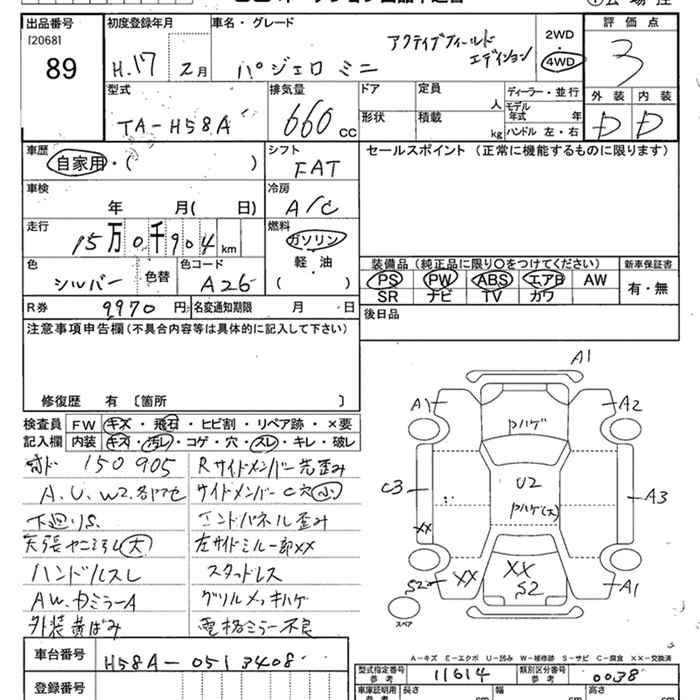 出品番号
[2068]
89
初度登録年月
H.17 2月
車名・グレード
パジェロ ミニ
アクティブフィールド
エディション
2WD
4WD
評価点
3
外装 内装
D D
型式
TA-H58A
排気量
660 cc
ドア
定員
人
形状
積載
kg
ディーラー・並行
モデル年式 年
ハンドル 左・右
車歴
自家用・( )
シフト
FAT
車検
年 月( 日)
冷房
A/C
走行
15万0千904 km
燃料
ガソリン
軽・油
( )
色
シルバー
色替
色コード
A26
R券 9970 円
名変通知期限 月 日
セールスポイント (正常に機能するものに限ります)
装備品 (純正品に限り○をつけてください)
新車保証書
PS PW ABS エアB AW
SR ナビ TV カワ
有・無
注意事項申告欄(不具合内容等は具体的に記入して下さい)
後日品
修復歴 有 〔箇所 〕
検査員
記入欄
FW キズ・飛石・ヒビ割・リペア跡・×要
内装 キズ・汚レ・コゲ・穴・スレ・キレ・破レ
150905
Rサイドメンバー先歪み
A.U.W2.
サイドメンバーC穴(小)
下廻りS.
エンドパネル歪み
天張ヤニ(大)
左サイドミル一部XX
ハンドルスレ
スタッドレス
AW.カミラーA
グリルメッキハゲ
外装黄ばみ
電格ミラー不良
A1
A1
A2
Pハゲ
C3
U2
Pハゲ(大)
A3
XX
XX
XX
S2
S2
A1
スペア
A-キズ E-エクボ U-凹み W-補修跡 S-サビ C-腐食 XX-交換済
車台番号
H58A-0513408
登録番号
型式指定番号
参考
11614
類別区分番号
参考
0038
車庫証明用
参考
長さ
cm
幅
cm
高さ
cm